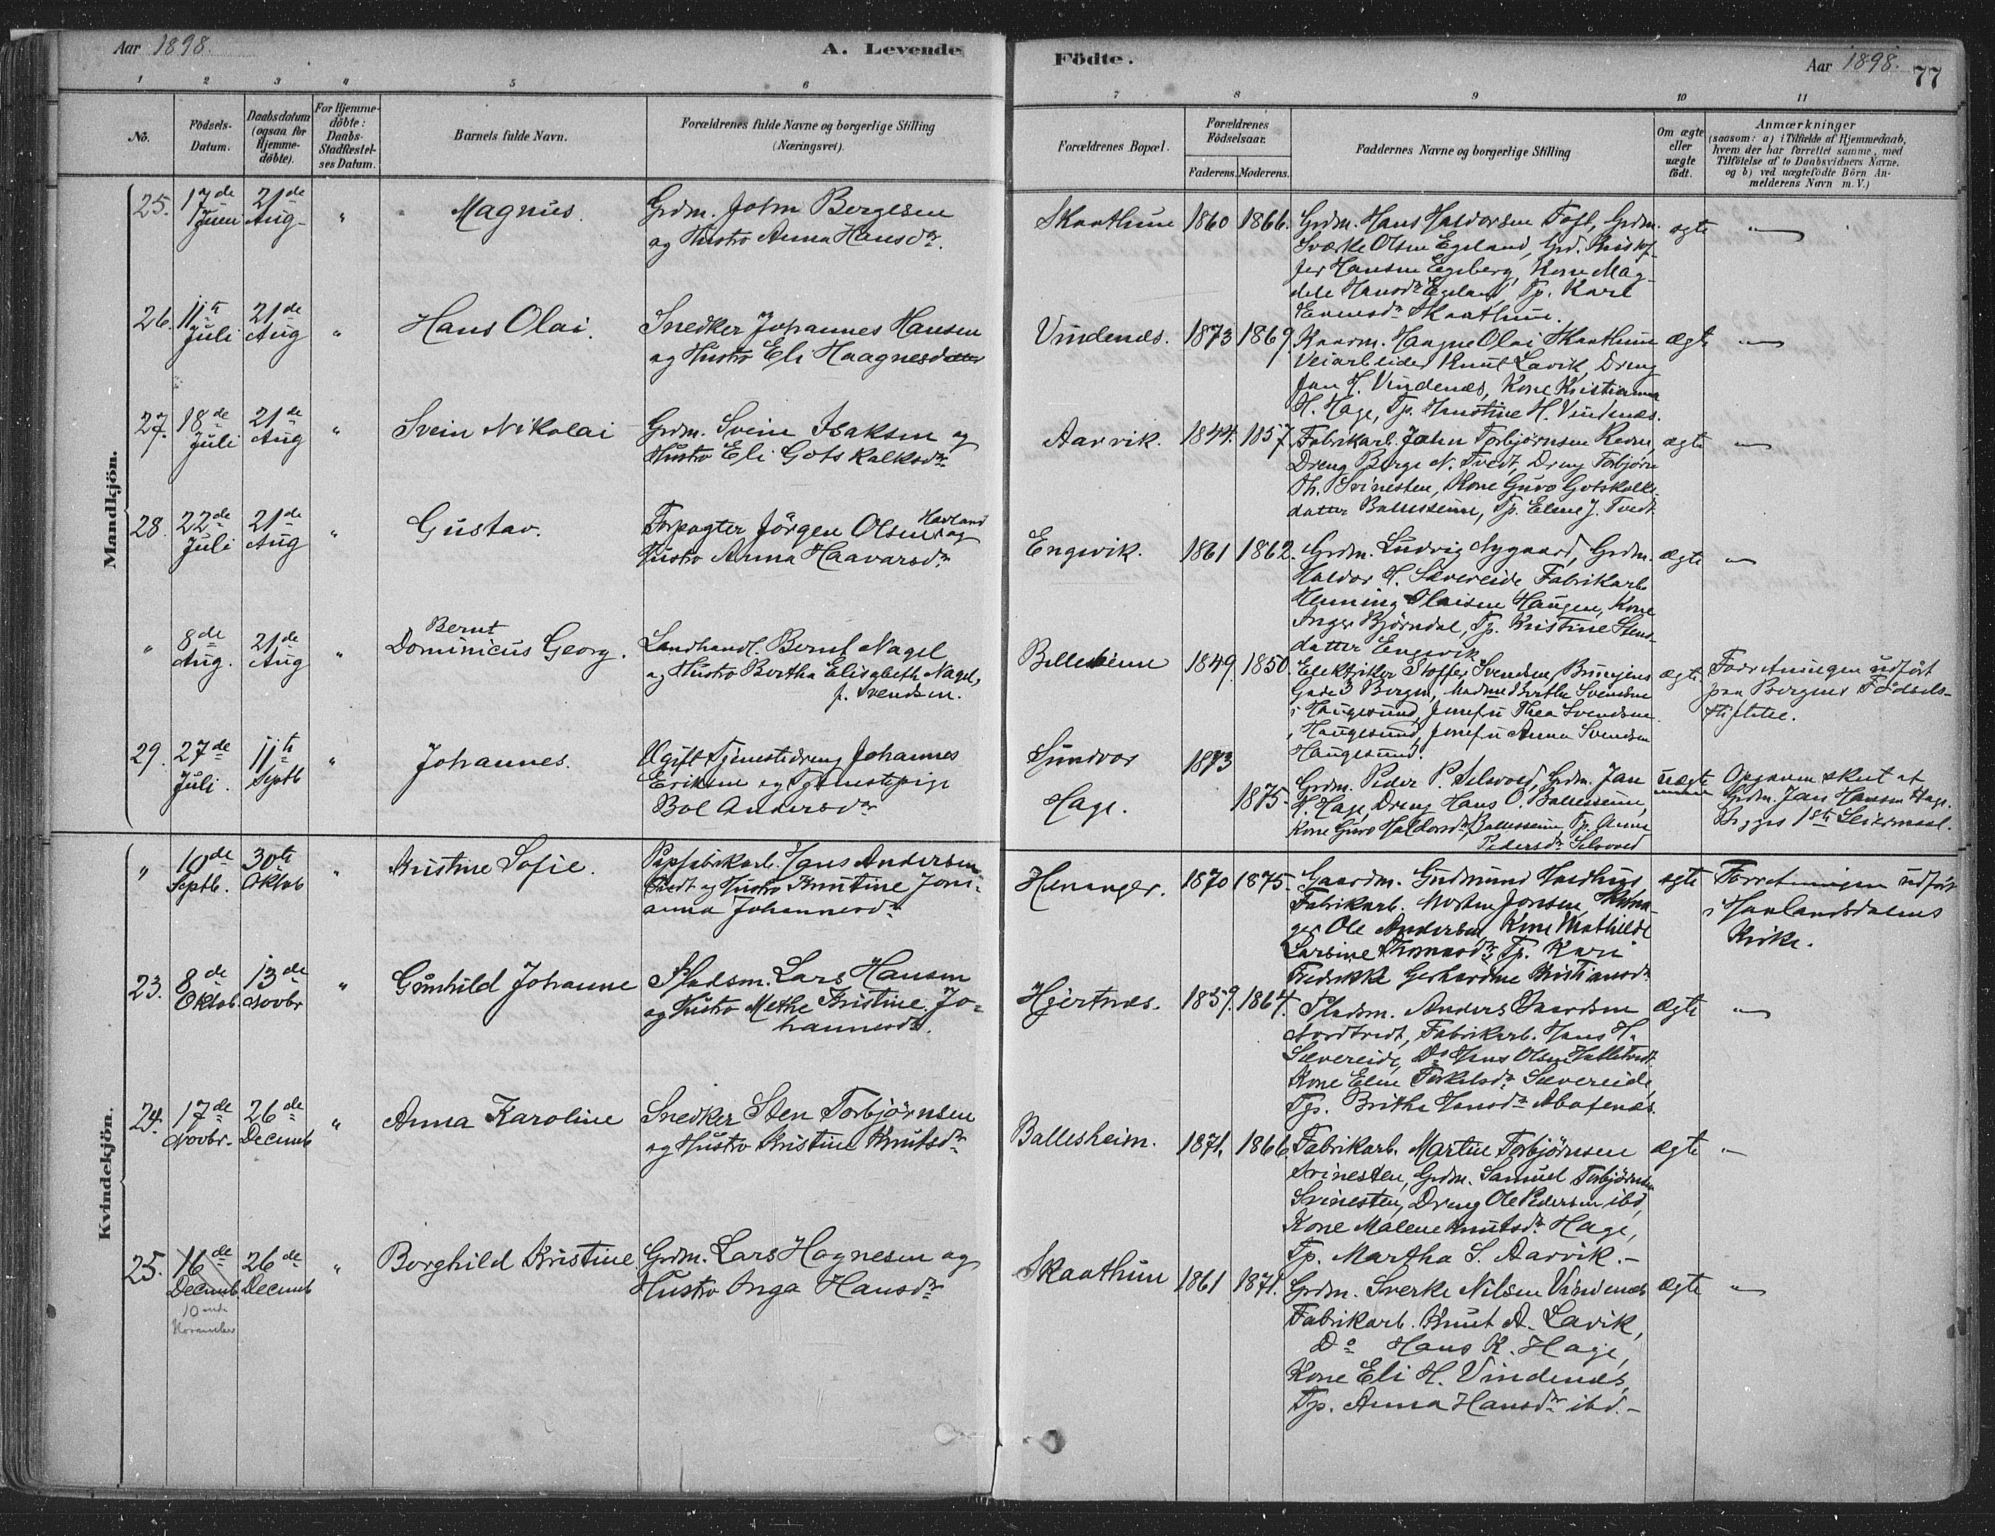 Aar 1898.
A. Levende
Födte.
Aar 1898.
77
1 2 3 4 5 6 7 8 9 10 11
No.
Födsels-
Datum.
Daabsdatum
(ogsaa for
Hjemme-
döbte).
For Hjemme-
döbte:
Daabs-
Stadfæstel-
ses Datum.
Barnets fulde Navn.
Forældrenes fulde Navne og borgerlige Stilling
(Næringsvei).
Forældrenes Bopæl.
Forældrenes
Födselsaar.
Faderens. Moderens.
Faddernes Navne og borgerlige Stilling
Om ægte
eller
uægte
født.
Anmærkninger
(saasom: a) i Tilfælde af Hjemmedaab,
hvem der har forrettet samme, med
Tilföielse af to Daabsvidners Navne,
og b) ved uægtefödte Börn An-
melderens Navn m. V.)
Mandkjön.
25. 17de
Juni
21de
Aug
"
Magnus.
Grdm. John Bergesen
og Hustro Anna Hansdr.
Skaathun 1860 1866.
Grdm. Hans Haldorsen Toft, Grdm.
Sværke Olsen Egeland, Grd. Kristof-
fer Hansen Egeberg, Kone Mag-
dele Hansdr Egeland, Tp. Karl
Skaathun.
egte "
26. 11te
Juli
21de
Aug
"
Hans Olai.
Snedker Johannes Hansen
og Hustro Eli Haagnesdatter
Vindenæs. 1873 1869.
Kaarm. Haagne Olai Skaathun
Veiarbeider Knut Lavik, Dreng
Jan H. Vindenæs, Kone Kristianna
H. Hage, Tp. Hanstine H. Vindenæs.
ægte "
27. 18de
Juli
21de
Aug
"
Svein Nikolai
Grdm. Svein Isaksen og
Hustro Eli Gotskalksdr.
Aarvik. 1844. 1857.
Fabrikarb. John Torbjørnsen
Dreng Berge N. Tvedt, Dreng Torbjørn
Th. Svinesten, Kone Guro Gotskalks-
datter Ballesheim, Tp. Eline J. Tvedt.
ægte "
28. 22de
Juli
21de
Aug
"
Gustav.
Forpagter Jörgen Olsen Havland og
Hustro Anna Haavarsdr.
Engevik. 1861 1862.
Grdm. Ludvig Nygaard, Grdm.
Haldor H. Sævereide Fabrikarb
Henning Olaisen Haugen, Kone
Inger Bjørndal, Tp. Kristine Stens-
datter Engevik
ægte "
" 8de
Aug.
21de
Aug
"
Bernt
Dominicus Georg.
Landhandl. Bernt Nagel
og Hustro Bertha Elisabeth Nagel,
f. Svendsen.
Ballesheim 1849. 1850.
Elektriker Stoffer Svendsen,
Gade 3 Bergen, Madme Berthe Svendsen
i Haugesund, Jomfru Thea Svendsen
i Haugesund, Jomfru Anna Svendsen
Haugesund.
ægte
Forretningen udført
paa Bergens Fødsels-
stiftelse.
29. 27de
Juli.
11te
Septb
"
Johannes.
Ugift Tjenestedreng Johannes
Eriksen og Tjenestepige
Bol Andersdr
Sundvor
Hage. 1873
1875.
Grdm. Peder P. Selsvold, Grdm. Jan
H. Hage, Dreng Hans O. Ballesheim,
Kone Guro Haldorsdr Ballesheim, Tp. Anna
Pedersdr Selsvold
uægte
Opgaven skeet af
Grdm. Jan Hansen Hage.
Begges 1ste Leiermaal.
Kvindekjön.
" 10de
Septb.
30te
Oktob
"
Kristine Sofie.
Papfabrikarb. Hans Andersen
Tvedt og Hustro Knutine Joni-
anna Johannesdr
Henanger. 1870 1875.
Gaardm. Gudmund
Fabrikarb. Morten Jonsen,
Ole Andersen, Kone Mathilde
Larsine Thomasdr, Tp. Kari
Fredrikke Gerhardine Kristiansdr
egte
Forretningen udført
i Haalandsdalens
Kirke.
23. 8de
Oktob.
13de
Novbr
"
Gunhild Johanne
Pladsm. Lars Hansen
og Hustro Methe Kristine Jo-
hannesdr.
Hjertnæs. 1859. 1864.
Pladsm. Anders Baardsen
Nordtvedt, Fabrikarb. Hans H.
Sævereide, Do Hans Olsen Hatletvedt
Kone Eline Torkelsdr Sævereide,
Tp. Brithe Hansdr
ægte "
24. 17de
Novbr.
26de
Decemb
"
Anna Karoline
Snedker Sten Torbjørnsen
og Hustro Kristine Knutsdr
Ballesheim. 1871. 1866.
Fabrikarb. Martin Torbjørnsen
Svinesten, Grdm. Samuel Torbjørnsen
Svinesten, Dreng Ole Pedersen ibd,
Kone Malene Knutsdr Hage,
Tp. Martha S. Aarvik. -
ægte "
25. 16de
Decemb
10ende
November
26de
Decemb
"
Borghild Kristine
Grdm. Lars Hognesen og
Hustro Inga Hansdr
Skaathun 1861 1871.
Grdm. Sverke Nilsen Vindenæs
Fabrikarb. Knut A. Lavik,
Do Hans K. Hage,
Kone Eli H. Vindenæs,
Tp. Anna Hansdr ibd. -
ægte "